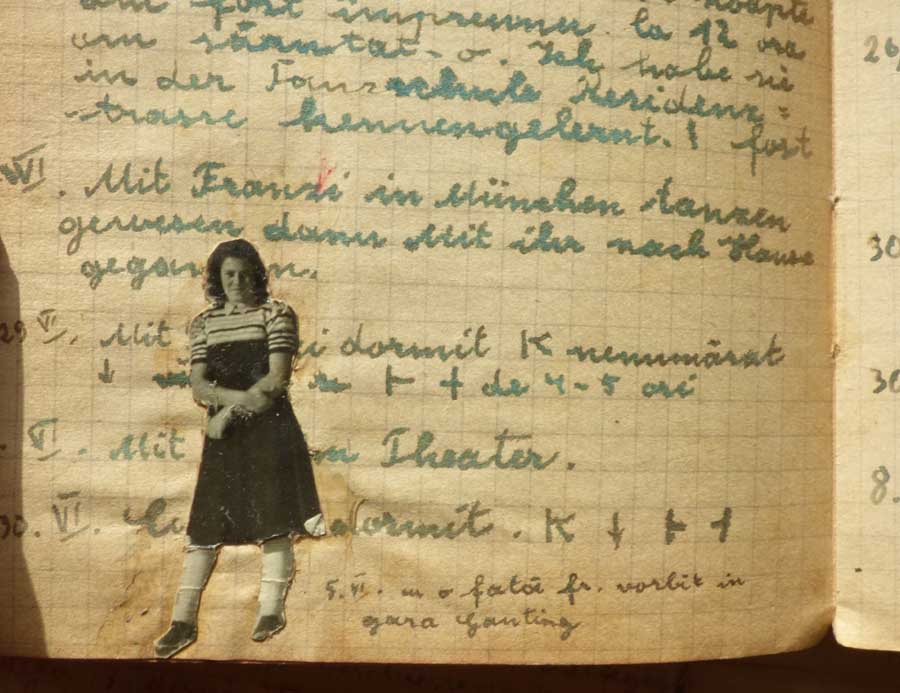 am fost împreună. la 12 ora
am sărutat-o. Ich habe sie
in der Tanzschule Residenz=
trasse kennengelernt. ! fost
VI. Mit Franzi in München tanzen
gewesen dann Mit ihr nach Hause
gegan n.
29 VI. Mit i dormit K nenumărat
↓ ⊢ † de 4-5 ori
. VI. Mit Theater.
30. VI. dormit. K ↓ ⊢ †
5. VI. cu o fată fr. vorbit in
gara Gauting
26,
30
30
8.